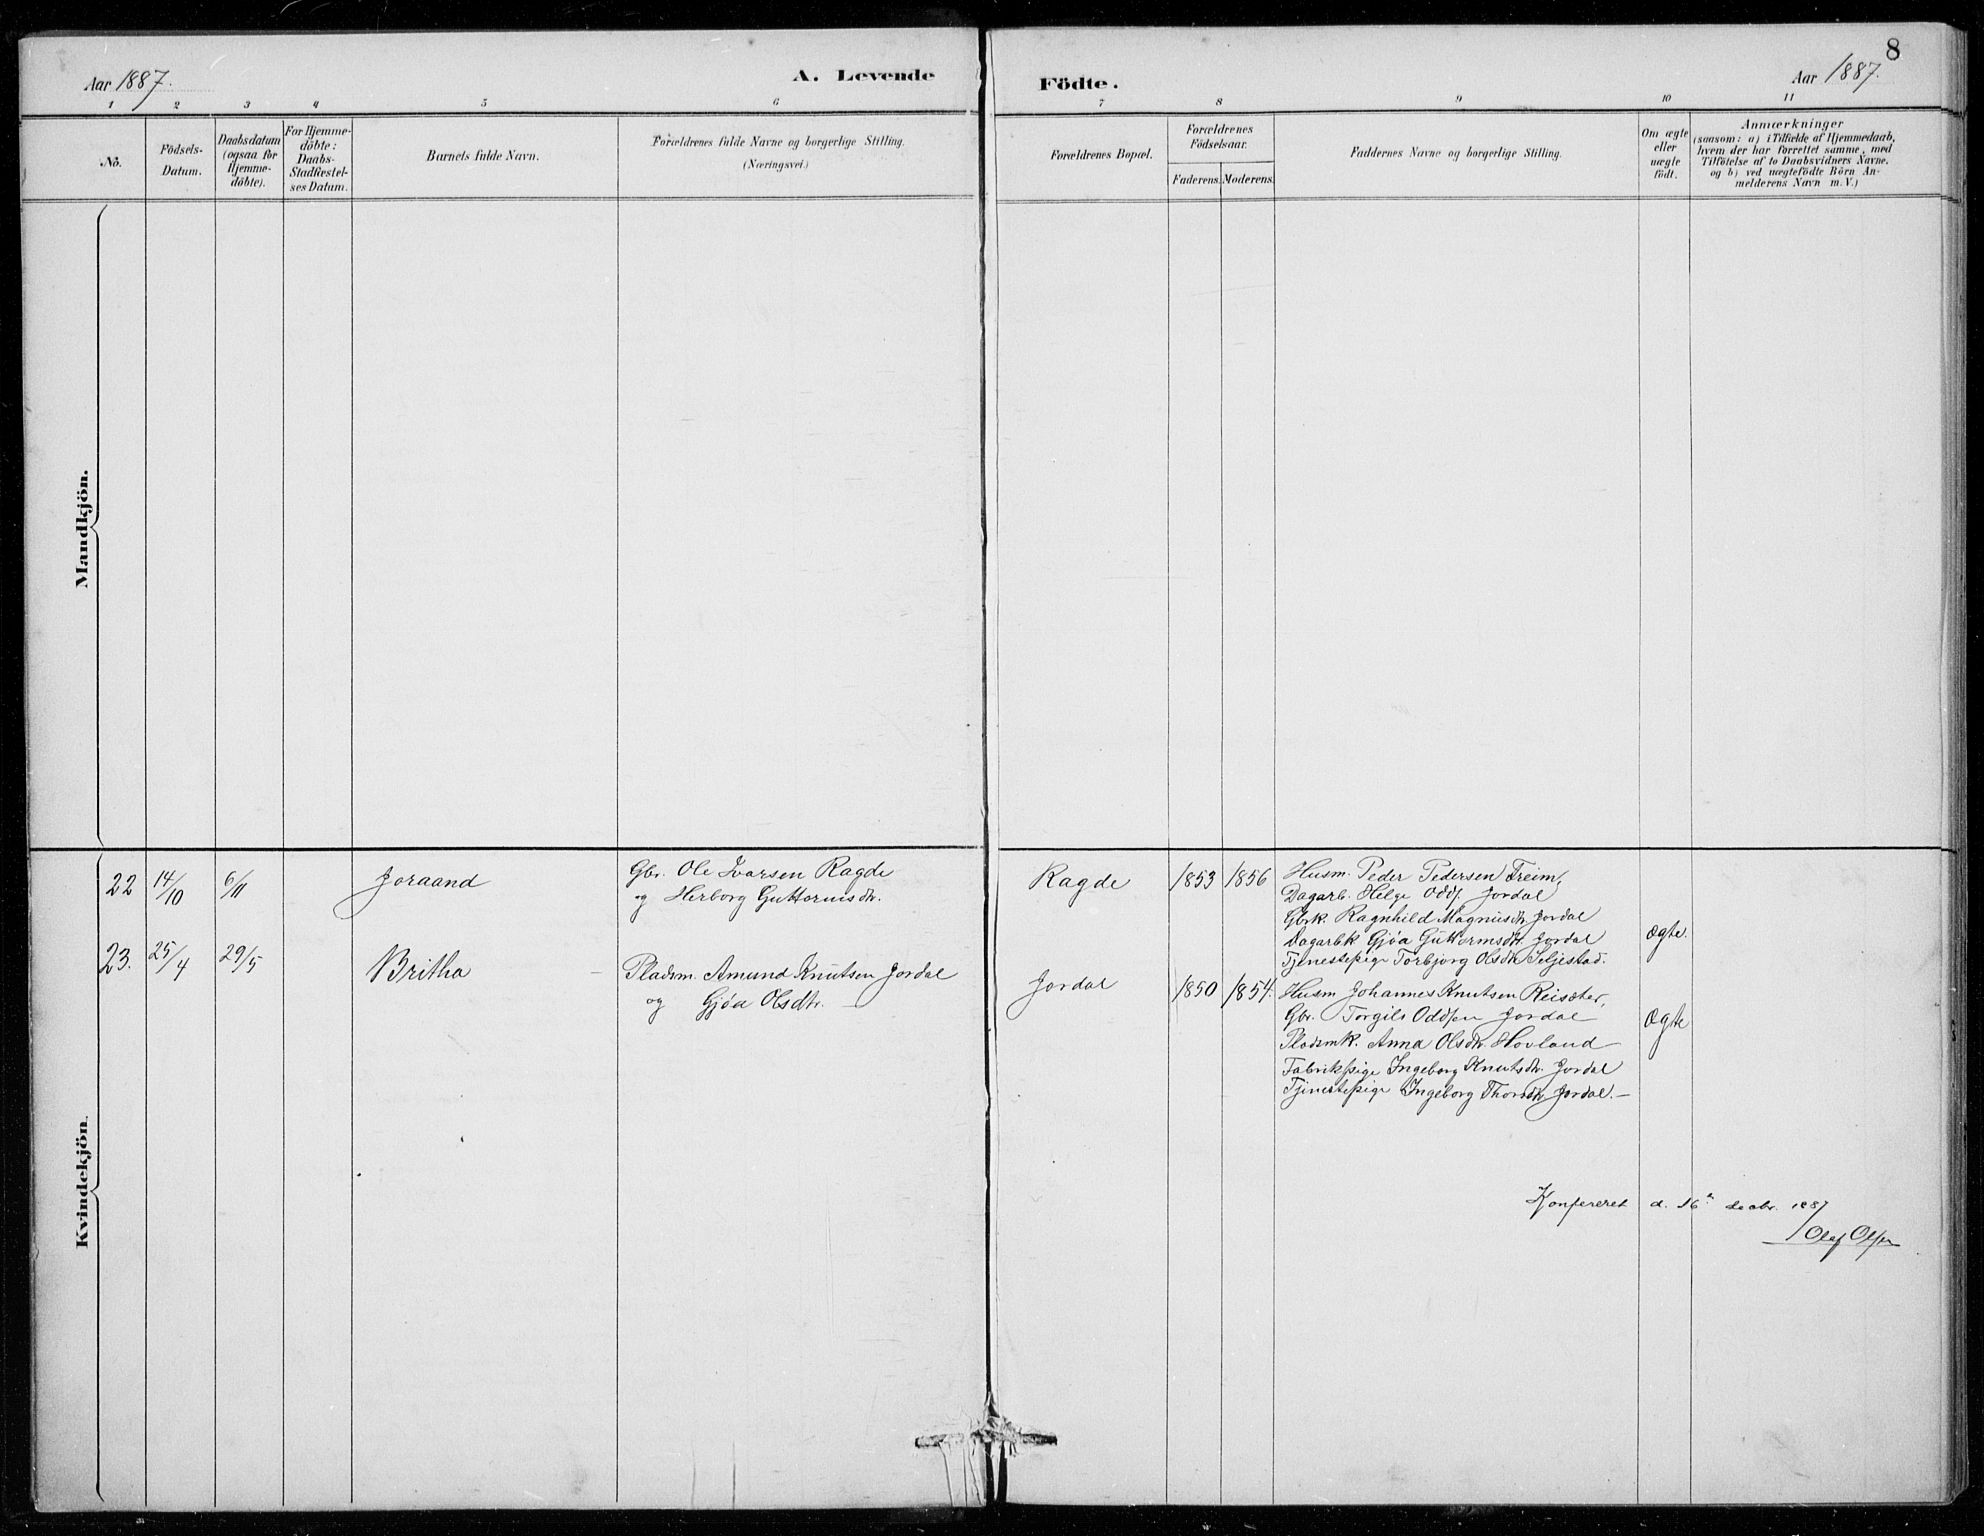 8
Aar 1887.
A. Levende
Födte.
Aar 1887.
1 2 3 4 5 6 7 8 9 10 11
No.
Födsels-
Datum.
Daabsdatum
(ogsaa for
Hjemme-
döbte).
For Hjemme-
döbte:
Daabs-
Stadfæstel-
ses Datum.
Barnets fulde Navn.
Forældrenes fulde Navne og borgerlige Stilling.
(Næringsvei.)
Forældrenes Bopæl.
Forældrenes
Födselsaar.
Faderens. Moderens.
Faddernes Navne og borgerlige Stilling.
Om ægte
eller
uægte
födt.
Anmærkninger
(saasom: a) i Tilfælde af Hjemmedaab,
hvem der har forrettet samme, med
Tilföielse af to Daabsvidners Navne.
og b) ved uægtefödte Börn An-
melderens Navn m. V.)
Mandkjön.
Kvindekjön.
22 14/10 6/11 Joraand
Gbr. Ole Ivarsen Ragde
og Herborg Guttormsdtr.
Ragde 1853 1856
Husm. Peder Pedersen Freim,
Dagarb. Helge Odds. Jordal
Gbrk. Ragnhild Magnusdtr. Jordal
Dagarbk Gjøa Guttormsdtr. Jordal
Tjenestepige Torbjorg Olsdtr Seljestad.
Ægte.
23. 25/4 29/5 Britha
Pladsm. Amund Knutsen Jordal
og Gjøa Olsdtr.
Jordal 1850 1854.
Husm Johannes Knutsen Reisæter,
Gbr. Torgils Oddsen Jordal
Pladsmk. Anna Olsdtr. Hovland
Fabrikpige Ingeborg Knutsdtr. Jordal
Tjenestepige Ingeborg Thorsdtr Jordal.
Ægte
Konfereret d. 16 decbr. 1887
Olaf Olsen